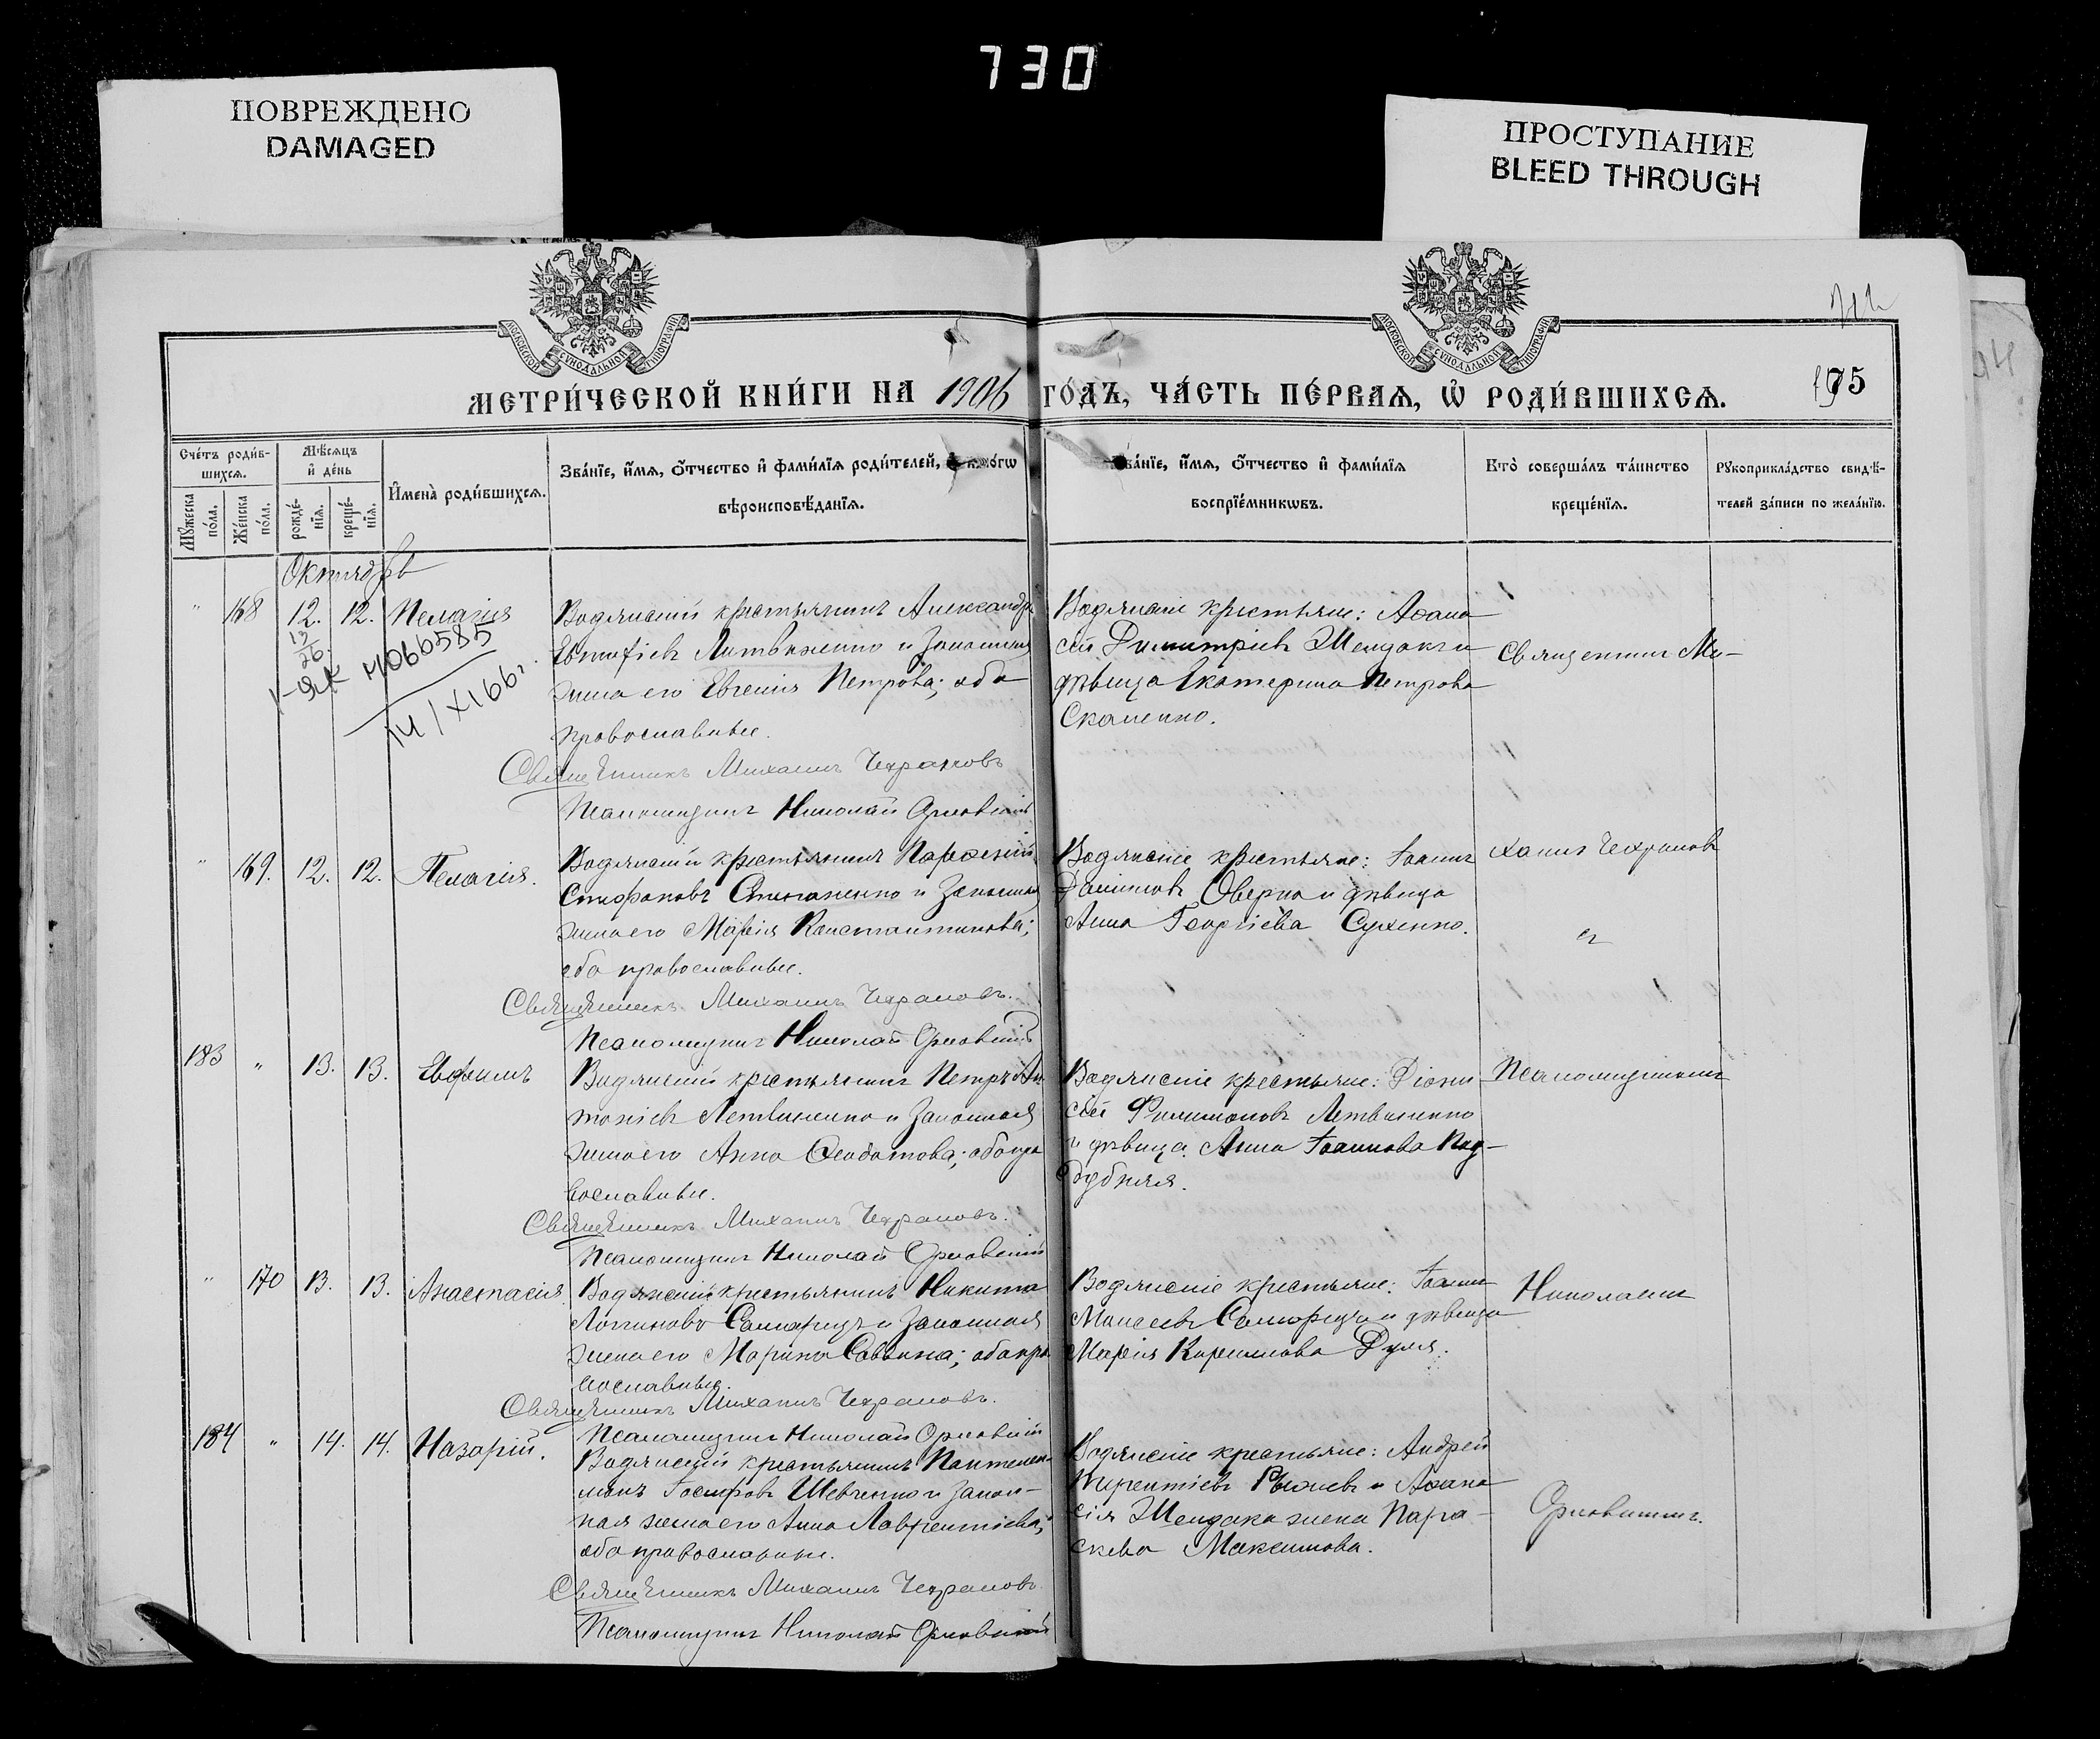 730
ПОВРЕЖДЕНО
DAMAGED
ПРОСТУПАНИЕ
BLEED THROUGH
МОСКОВСКОЙ СѴНОДАЛЬНОЙ ТИПОГРАФІИ
МОСКОВСКОЙ СѴНОДАЛЬНОЙ ТИПОГРАФІИ
МЕТРИ́ЧЕСКОЙ КНИ́ГИ НА 1906 ГО́ДЪ, ЧА́СТЬ ПЕ́РВАѦ, Ѡ҆ РОДИ́ВШИХСѦ.
195
Сче́тъ роди́в-
шихсѧ.
Мꙋ́жеска по́ла.
Же́нска по́ла.
Мѣ́сѧцъ
и҆ де́нь
рожде́-
нїѧ.
креще́-
нїѧ.
И҆мена̀ роди́вшихсѧ.
Зва́нїе, и҆́мѧ, ѻ҆́тчество и҆ фами́лїѧ роди́телей, и҆ како́гѡ
вѣроисповѣ́данїѧ.
Зва́нїе, и҆́мѧ, ѻ҆́тчество и҆ фами́лїѧ
воспрїе́мникѡвъ.
Кто̀ соверша́лъ та́инство
креще́нїѧ.
Рꙋкоприкла́дство свидѣ́-
телей за́писи по жела́нїю.
Октябрь
" 168 12. 12. Пелагія
13
26
1-ЯК 4066585
14/XI 66 г.
Водянскій крестьянинъ Александръ
Евтифіевъ Литвиненко и законная
жена его Евгенія Петрова; оба
православные.
Священникъ Михаилъ Чехрановъ
Псаломщикъ Николай Орловскій
Водянскіе крестьяне: Аѳана
сій Димитріевъ Шендакъ и
дѣвица Екатерина Петрова
Скаленко.
Священникъ Ми-
" 169. 12. 12. Пелагія.
Водянскій крестьянинъ Парѳеній
Стефановъ Степаненко и законная
жена его Марія Константинова;
оба православные.
Священникъ Михаилъ Чехрановъ.
Псаломщикъ Николай Орловскій
Водянскіе крестьяне: Іоаннъ
Даниловъ Оверко и дѣвица
Анна Георгіева Сухенко.
хаилъ Чехрановъ
съ
183 " 13. 13. Евфимъ
Водянскій крестьянинъ Петръ Ан
тоніевъ Летвиненко и законная
жена его Анна Ѳеодотова; оба пра
вославные.
Священникъ Михаилъ Чехрановъ.
Псаломщикъ Николай Орловскій
Водянскіе крестьяне: Діони
сій Филимоновъ Летвиненко
и дѣвица Анна Іоаннова Под-
дубная.
Псаломщикомъ
" 170 13. 13. Анастасія
Водянскій крестьянинъ Никита
Логиновъ Самарецъ и законная
жена его Марина Саввина; оба пра
вославные.
Священникъ Михаилъ Чехрановъ.
Псаломщикъ Николай Орловскій
Водянскіе крестьяне: Іоаннъ
Моисеевъ Самарецъ и дѣвица
Марія Кириллова Дуля.
Николаемъ
184 " 14. 14. Назарій.
Водянскій крестьянинъ Пантелей-
монъ Іосифовъ Шевченко и закон-
ная жена его Анна Лаврентіева;
оба православные.
Священникъ Михаилъ Чехрановъ.
Псаломщикъ Николай Орловскій
Водянскіе крестьяне: Андрей
Терентіевъ Рыжиевъ и Аѳана
сія Шендака жена Пара-
скева Максимова.
Орловскимъ.